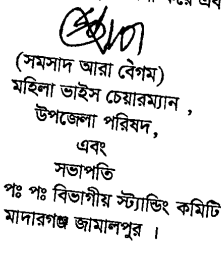 (সমসাদ আরা বেগম)
মহিলা ভাইস চেয়ারম্যান ,
উপজেলা পরিষদ,
এবং
সভাপতি
পঃ পঃ বিভাগীয় স্ট্যান্ডিং কমিটি
মাদারগঞ্জ জামালপুর ।